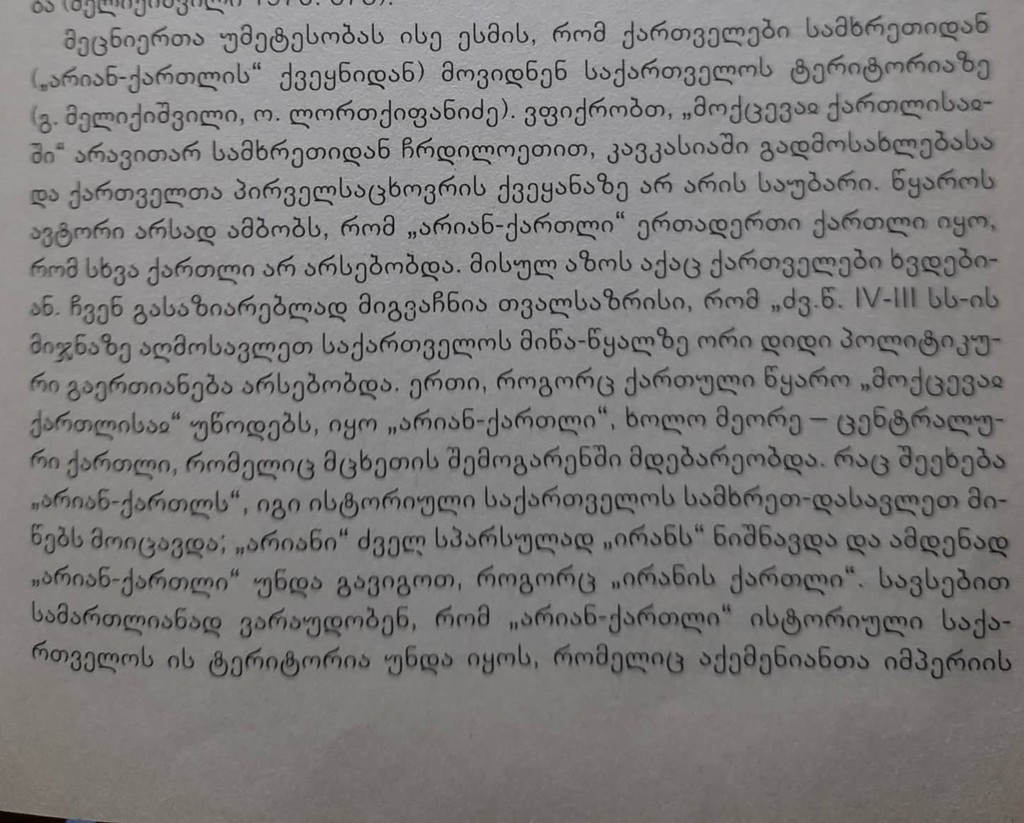 მეცნიერთა უმეტესობას ისე ესმის, რომ ქართველები სამხრეთიდან
(„არიან-ქართლის“ ქვეყნიდან) მოვიდნენ საქართველოს ტერიტორიაზე
(გ. მელიქიშვილი, ო. ლორთქიფანიძე). ვფიქრობთ, „მოქცევაჲ ქართლისაჲ-
ში“ არავითარ სამხრეთიდან ჩრდილოეთით, კავკასიაში გადმოსახლებასა
და ქართველთა პირველსაცხოვრის ქვეყანაზე არ არის საუბარი. წყაროს
ავტორი არსად ამბობს, რომ „არიან-ქართლი“ ერთადერთი ქართლი იყო,
რომ სხვა ქართლი არ არსებობდა. მისულ აზოს აქაც ქართველები ხვდები-
ან. ჩვენ გასაზიარებლად მიგვაჩნია თვალსაზრისი, რომ „ძვ.წ. IV-III სს-ის
მიჯნაზე აღმოსავლეთ საქართველოს მიწა-წყალზე ორი დიდი პოლიტიკუ-
რი გაერთიანება არსებობდა. ერთი, როგორც ქართული წყარო „მოქცევაჲ
ქართლისაჲ“ უწოდებს, იყო „არიან-ქართლი“, ხოლო მეორე – ცენტრალუ-
რი ქართლი, რომელიც მცხეთის შემოგარენში მდებარეობდა. რაც შეეხება
„არიან-ქართლს“, იგი ისტორიული საქართველოს სამხრეთ-დასავლეთ მი-
წებს მოიცავდა; „არიანი“ ძველ სპარსულად „ირანს“ ნიშნავდა და ამდენად
„არიან-ქართლი“ უნდა გავიგოთ, როგორც „ირანის ქართლი“. სავსებით
სამართლიანად ვარაუდობენ, რომ „არიან-ქართლი“ ისტორიული საქა-
რთველოს ის ტერიტორია უნდა იყოს, რომელიც აქემენიანთა იმპერიის